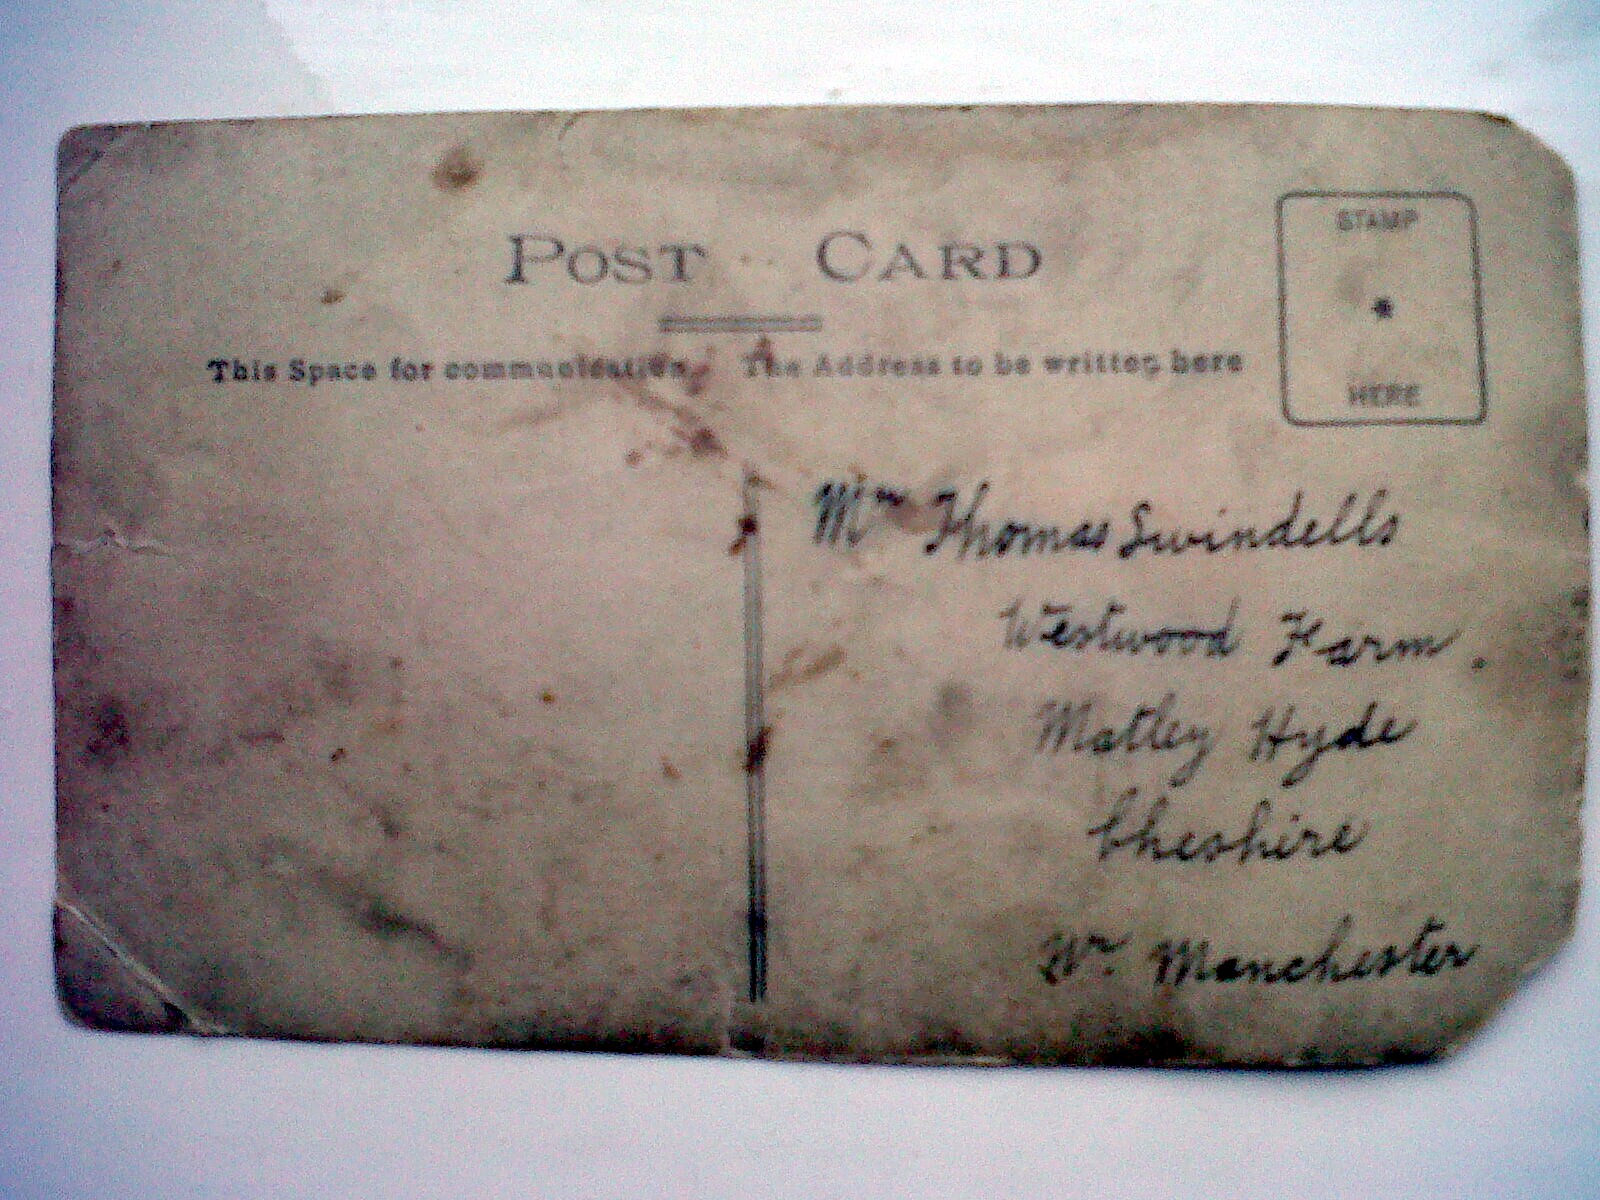 POST CARD
STAMP
HERE
This Space for communication
The Address to be written here
Mrs Thomas Swindells
Westwood Farm.
Matley Hyde
Cheshire
Nr. Manchester